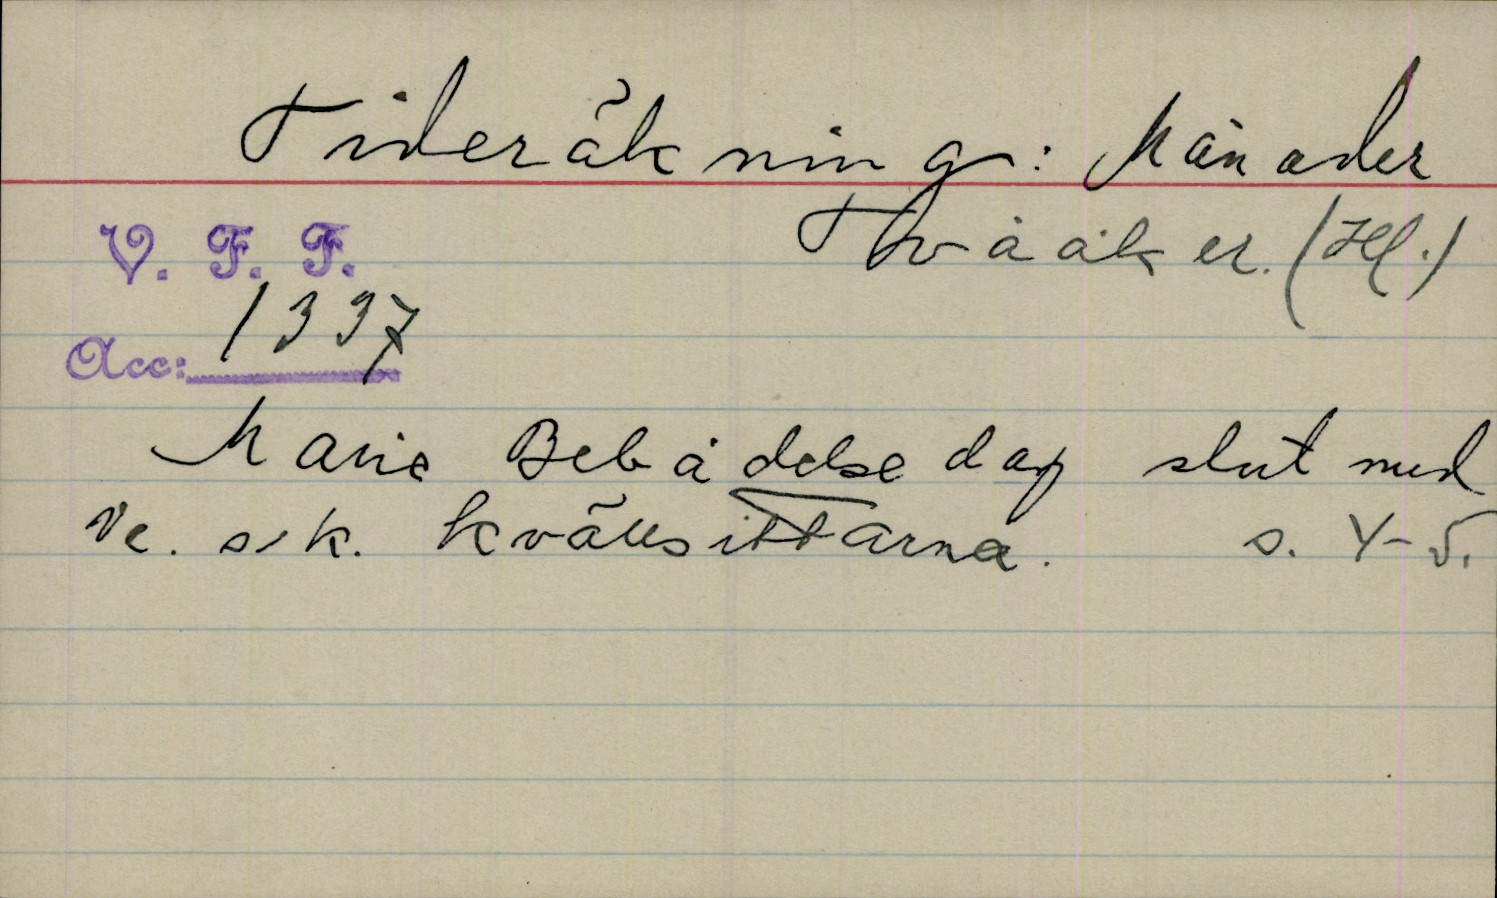 Tideräkning: Månader
Tvååker. (Hl.)
V. F. F.
Acc: 1337
Marie Bebådelsedag slut med
de s.k. kvällsittarna. s. 4-5.